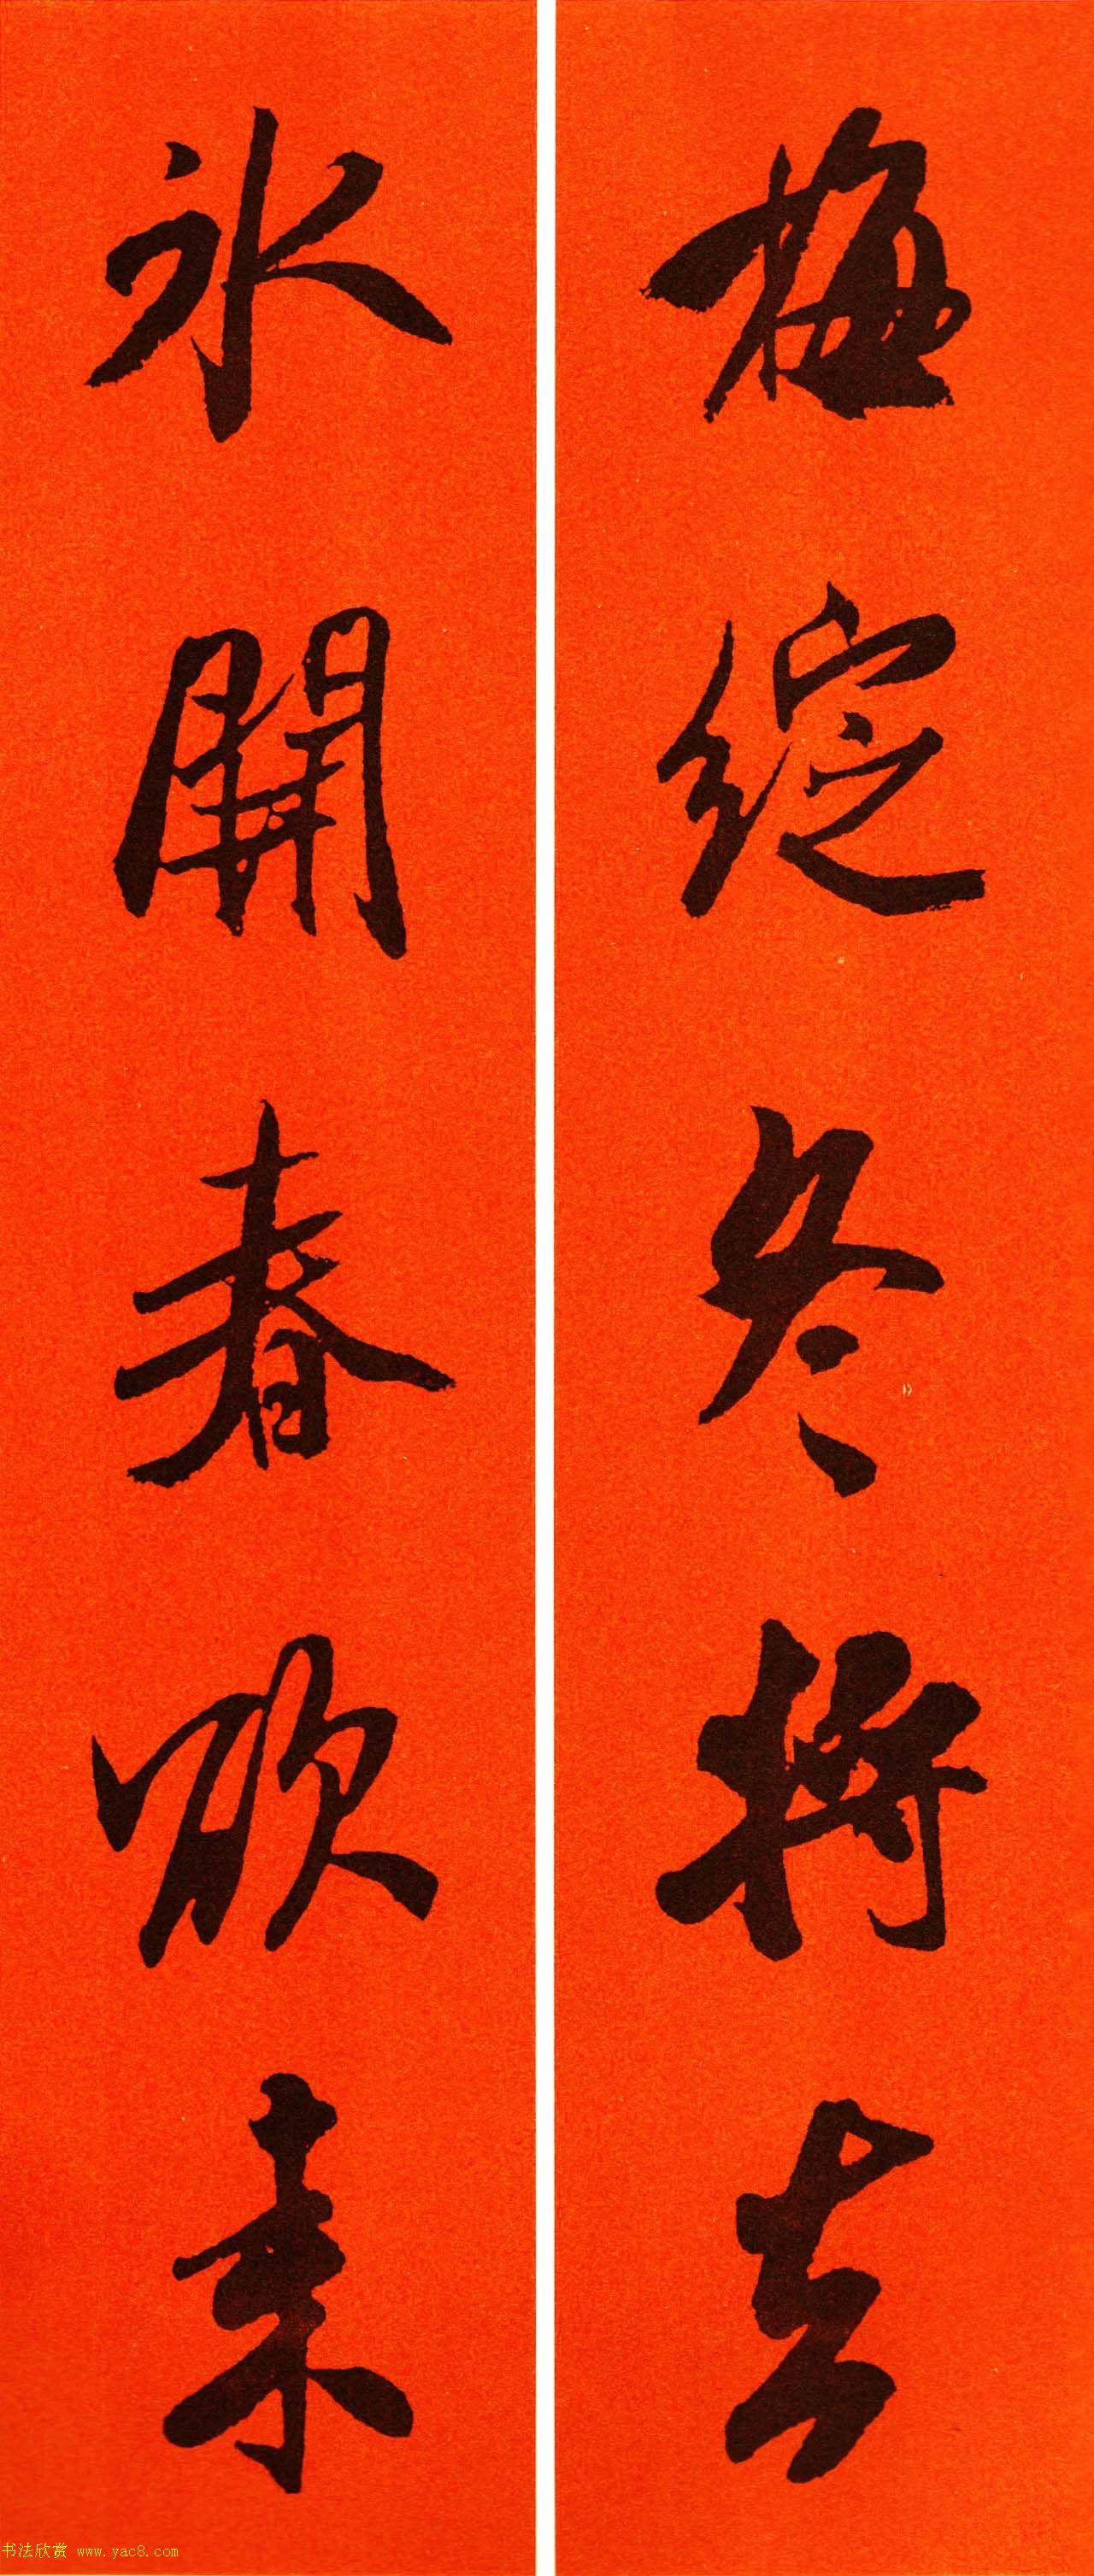 梅綻冬將去
冰開春欲來
书法欣赏 www.yac8.com